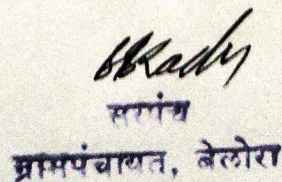 सरपंच
ग्रामपंचायत, बेलोरा